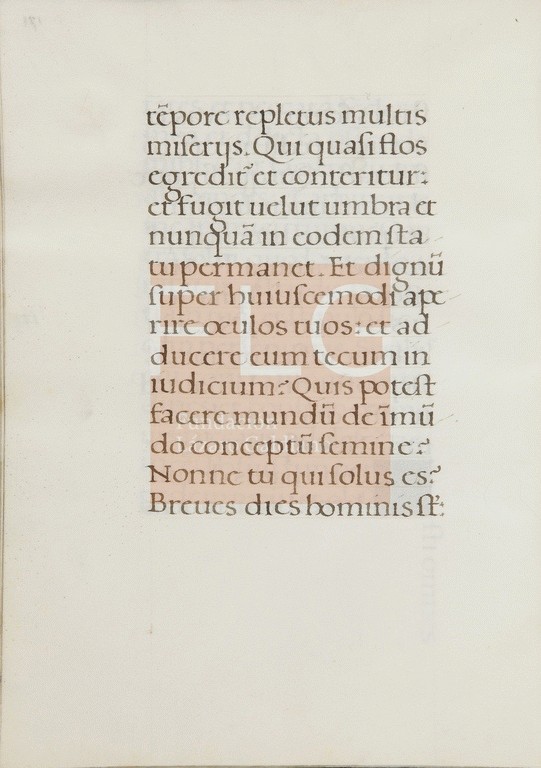 tēpore repletus multis
miserijs. Qui quasi flos
egredit᷑ et conteritur:
et fugit uelut umbra et
nunquā in eodem sta
tu permanet. Et dignū
super huiuscemodi ape
rire oculos tuos: et ad
ducere eum tecum in
iudicium? Quis potest
facere mundū de īmū
do conceptū semine?
Nonne tu qui solus es?
Breues dies hominis st̄:
FLG
Fundación